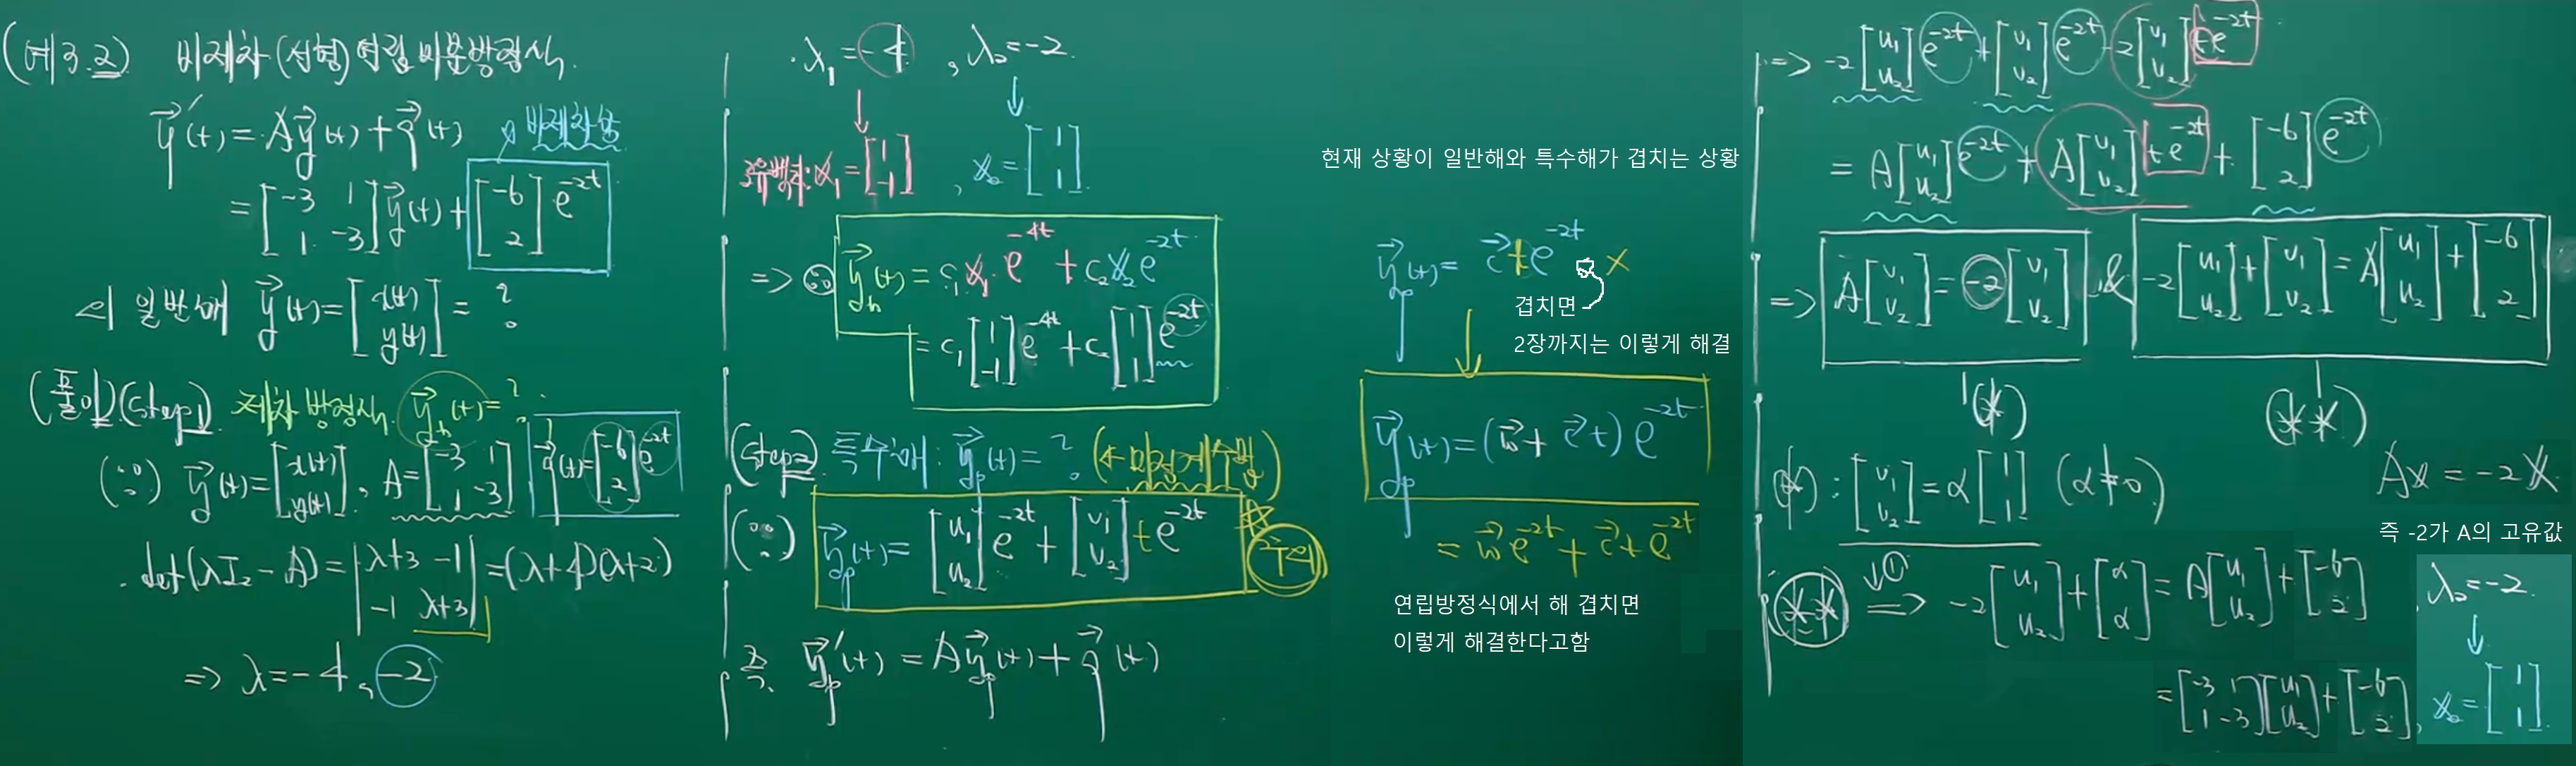 (예3.2) 비제차(선형)연립미분방정식.
y⃗'(t) = A y⃗(t) + q⃗(t) → 비제차항
= [-3 1; 1 -3] y⃗(t) + [-6; 2] e^{-2t}
의 일반해 y⃗(t) = [x(t); y(t)] = ?
(풀이)(step1) 제차방정식 y⃗_h(t) = ?
(∵) y⃗(t) = [x(t); y(t)], A = [-3 1; 1 -3], q⃗(t) = [-6; 2] e^{-2t}
· det(λI₂ - A) = |λ+3 -1; -1 λ+3| = (λ+4)(λ+2)
=> λ = -4, -2
· λ₁ = -4, λ₂ = -2.
고유벡터: x₁ = [1; -1], x₂ = [1; 1]
=> ∴ y⃗_h(t) = c₁x₁e^{-4t} + c₂x₂e^{-2t}
= c₁[1; -1]e^{-4t} + c₂[1; 1]e^{-2t}
(step2) 특수해: y⃗_p(t) = ? (←미정계수법)
(∵) y⃗_p(t) = [u₁; u₂] e^{-2t} + [v₁; v₂] t e^{-2t} ☆ 주의
즉, y⃗_p'(t) = A y⃗_p(t) + q⃗(t)
현재 상황이 일반해와 특수해가 겹치는 상황
y⃗_p(t) = c⃗ t e^{-2t} ×
겹치면
2장까지는 이렇게 해결
y⃗_p(t) = (w⃗ + c⃗ t) e^{-2t}
= w⃗ e^{-2t} + c⃗ t e^{-2t}
연립방정식에서 해 겹치면
이렇게 해결한다고함
=> -2[u₁; u₂] e^{-2t} + [v₁; v₂] e^{-2t} - 2[v₁; v₂] t e^{-2t}
= A[u₁; u₂] e^{-2t} + A[v₁; v₂] t e^{-2t} + [-6; 2] e^{-2t}
=> A[v₁; v₂] = -2[v₁; v₂] & -2[u₁; u₂] + [v₁; v₂] = A[u₁; u₂] + [-6; 2]
(*) (**)
(*): [v₁; v₂] = α[1; 1] (α≠0)
Ax = -2x
즉 -2가 A의 고유값
(**) ↓① => -2[u₁; u₂] + [α; α] = A[u₁; u₂] + [-6; 2]
= [-3 1; 1 -3][u₁; u₂] + [-6; 2],
, λ₂ = -2.
↓
x₂ = [1; 1]